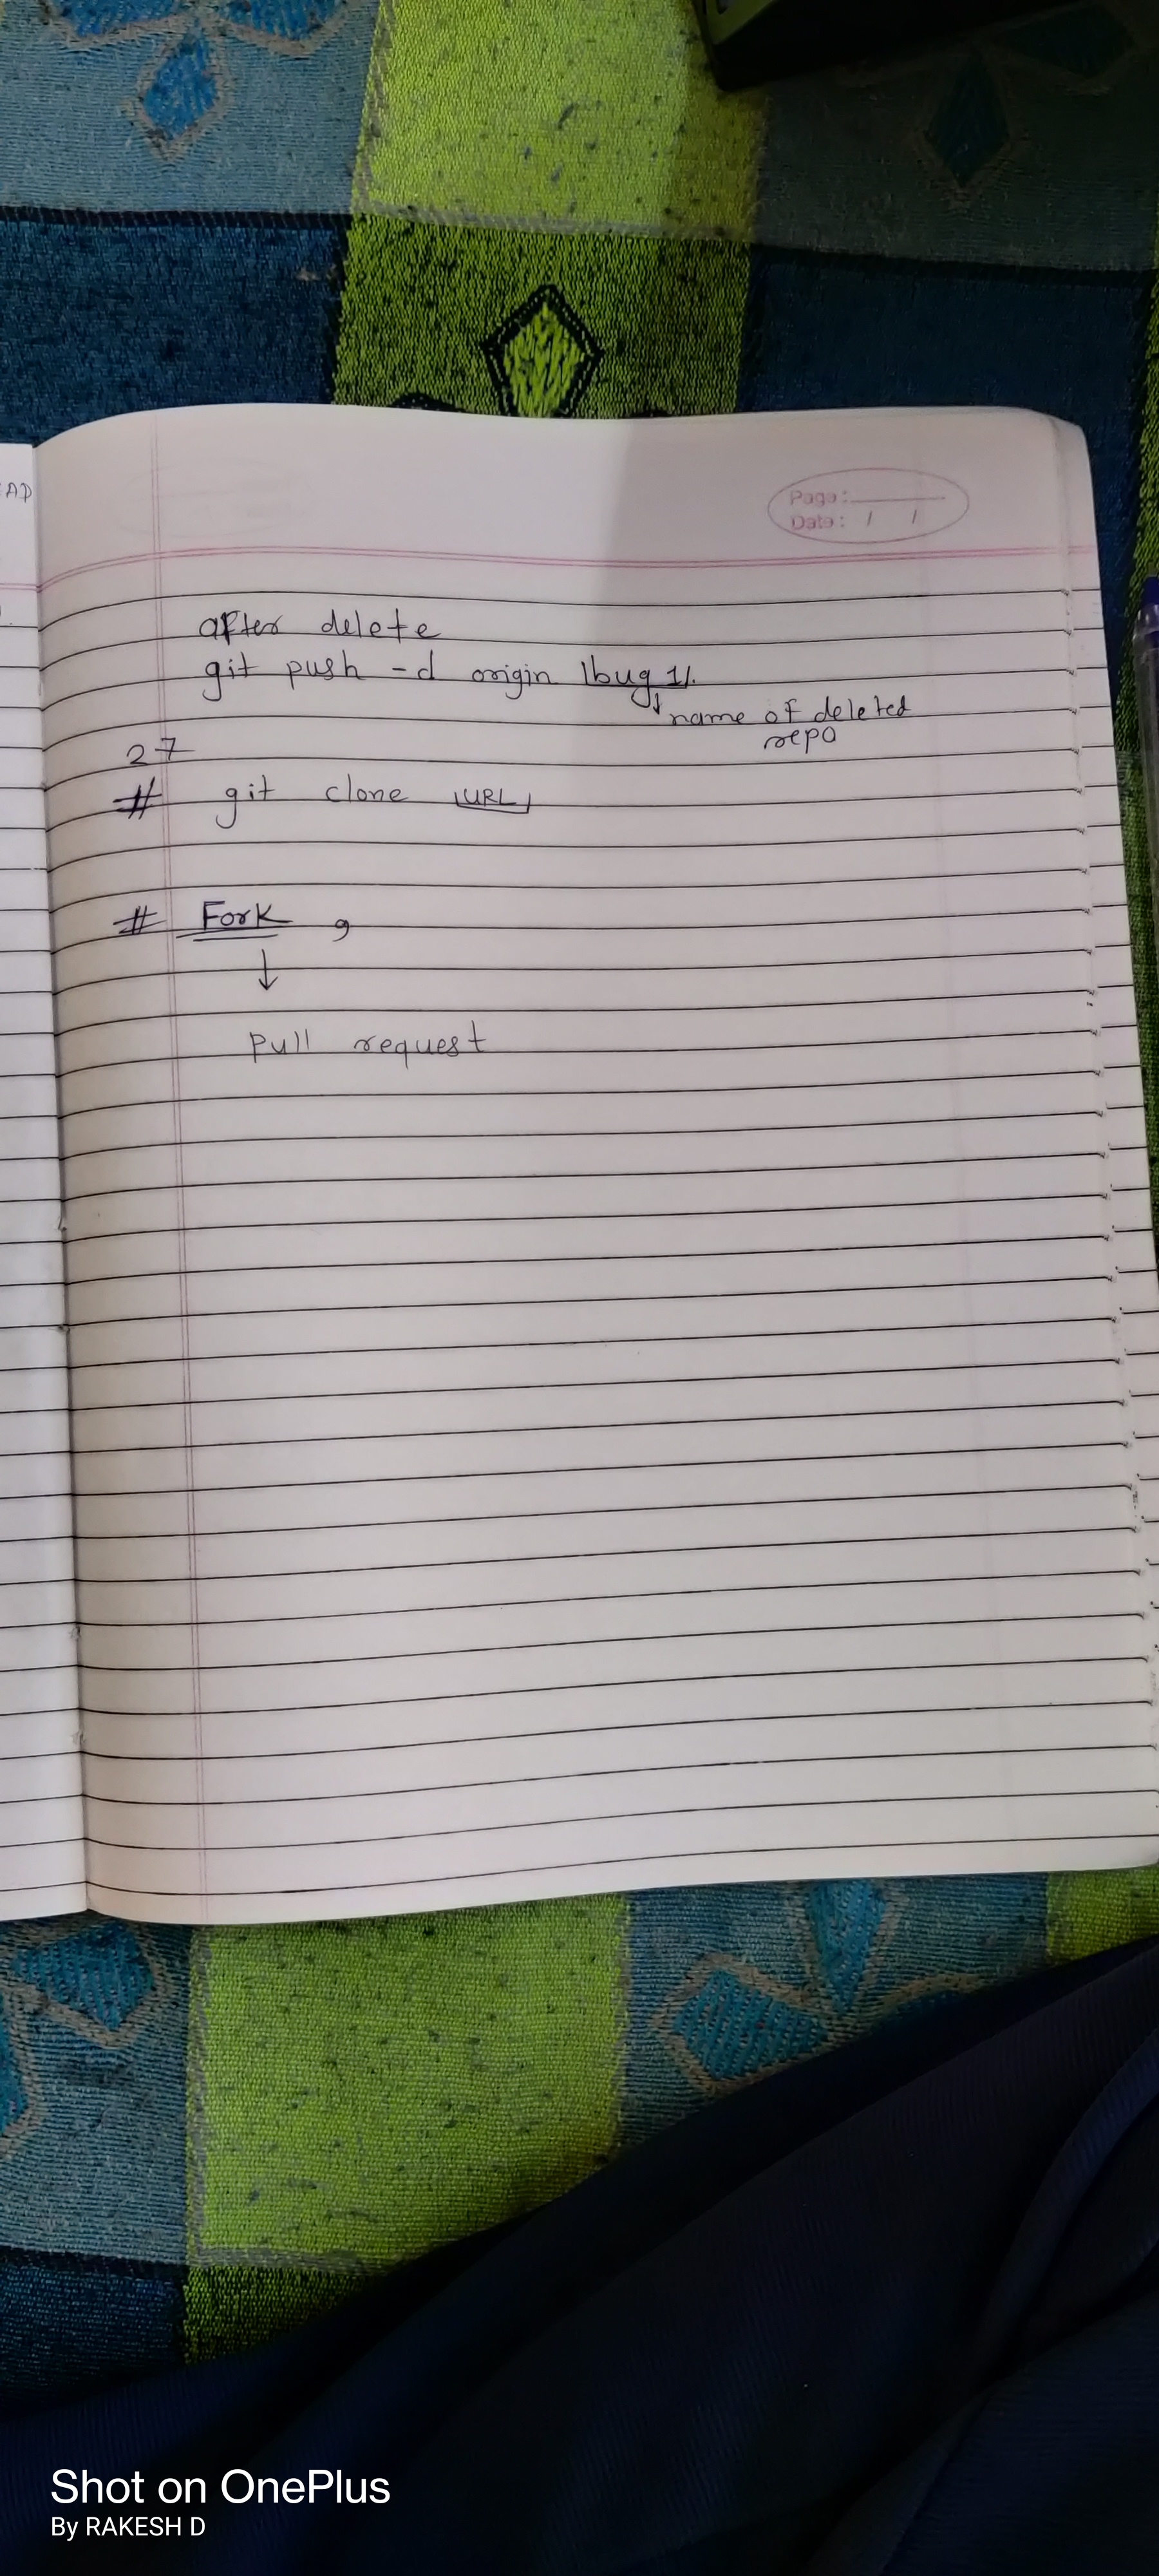 AD
Page:
Date: / /
after delete
git push -d origin bug 1
name of deleted
repo
27
# git clone URL
# Fork ,
↓
Pull request
Shot on OnePlus
By RAKESH D